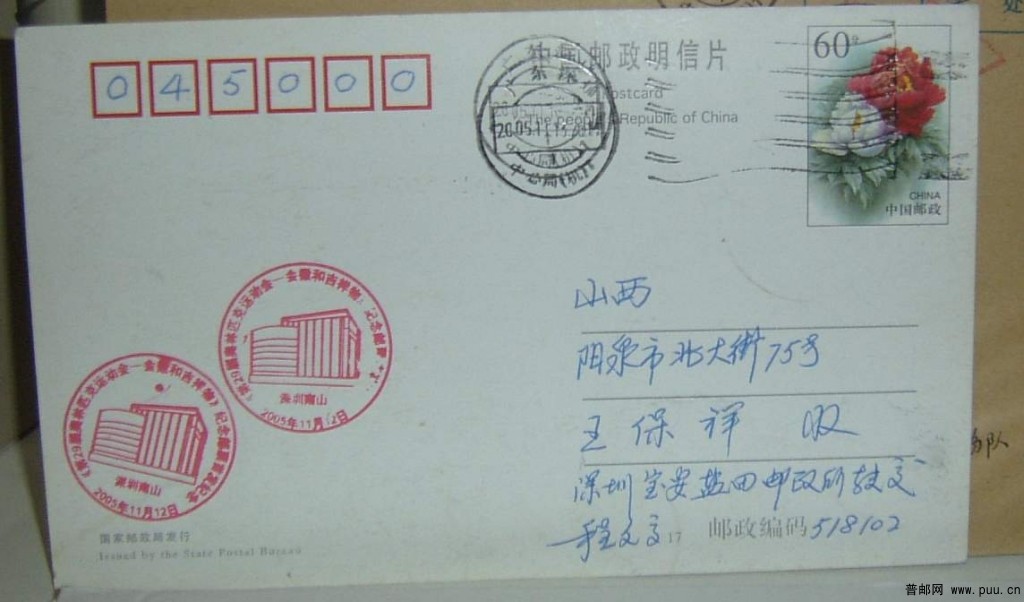 045000
中国邮政明信片
Postcard
The People's Republic of China
60分
CHINA
中国邮政
2005.11.13
中心局(机)1
《第29届奥林匹克运动会—会徽和吉祥物》纪念邮票
深圳南山
2005年11月12日
《第29届奥林匹克运动会—会徽和吉祥物》纪念邮票首发纪念
深圳南山
2005年11月12日
山西
阳泉市北大街75号
王保祥 收
深圳宝安盐田邮政所转交
程文
17 邮政编码 518102
国家邮政局发行
Issued by the State Postal Bureau
队
普邮网 www.puu.cn